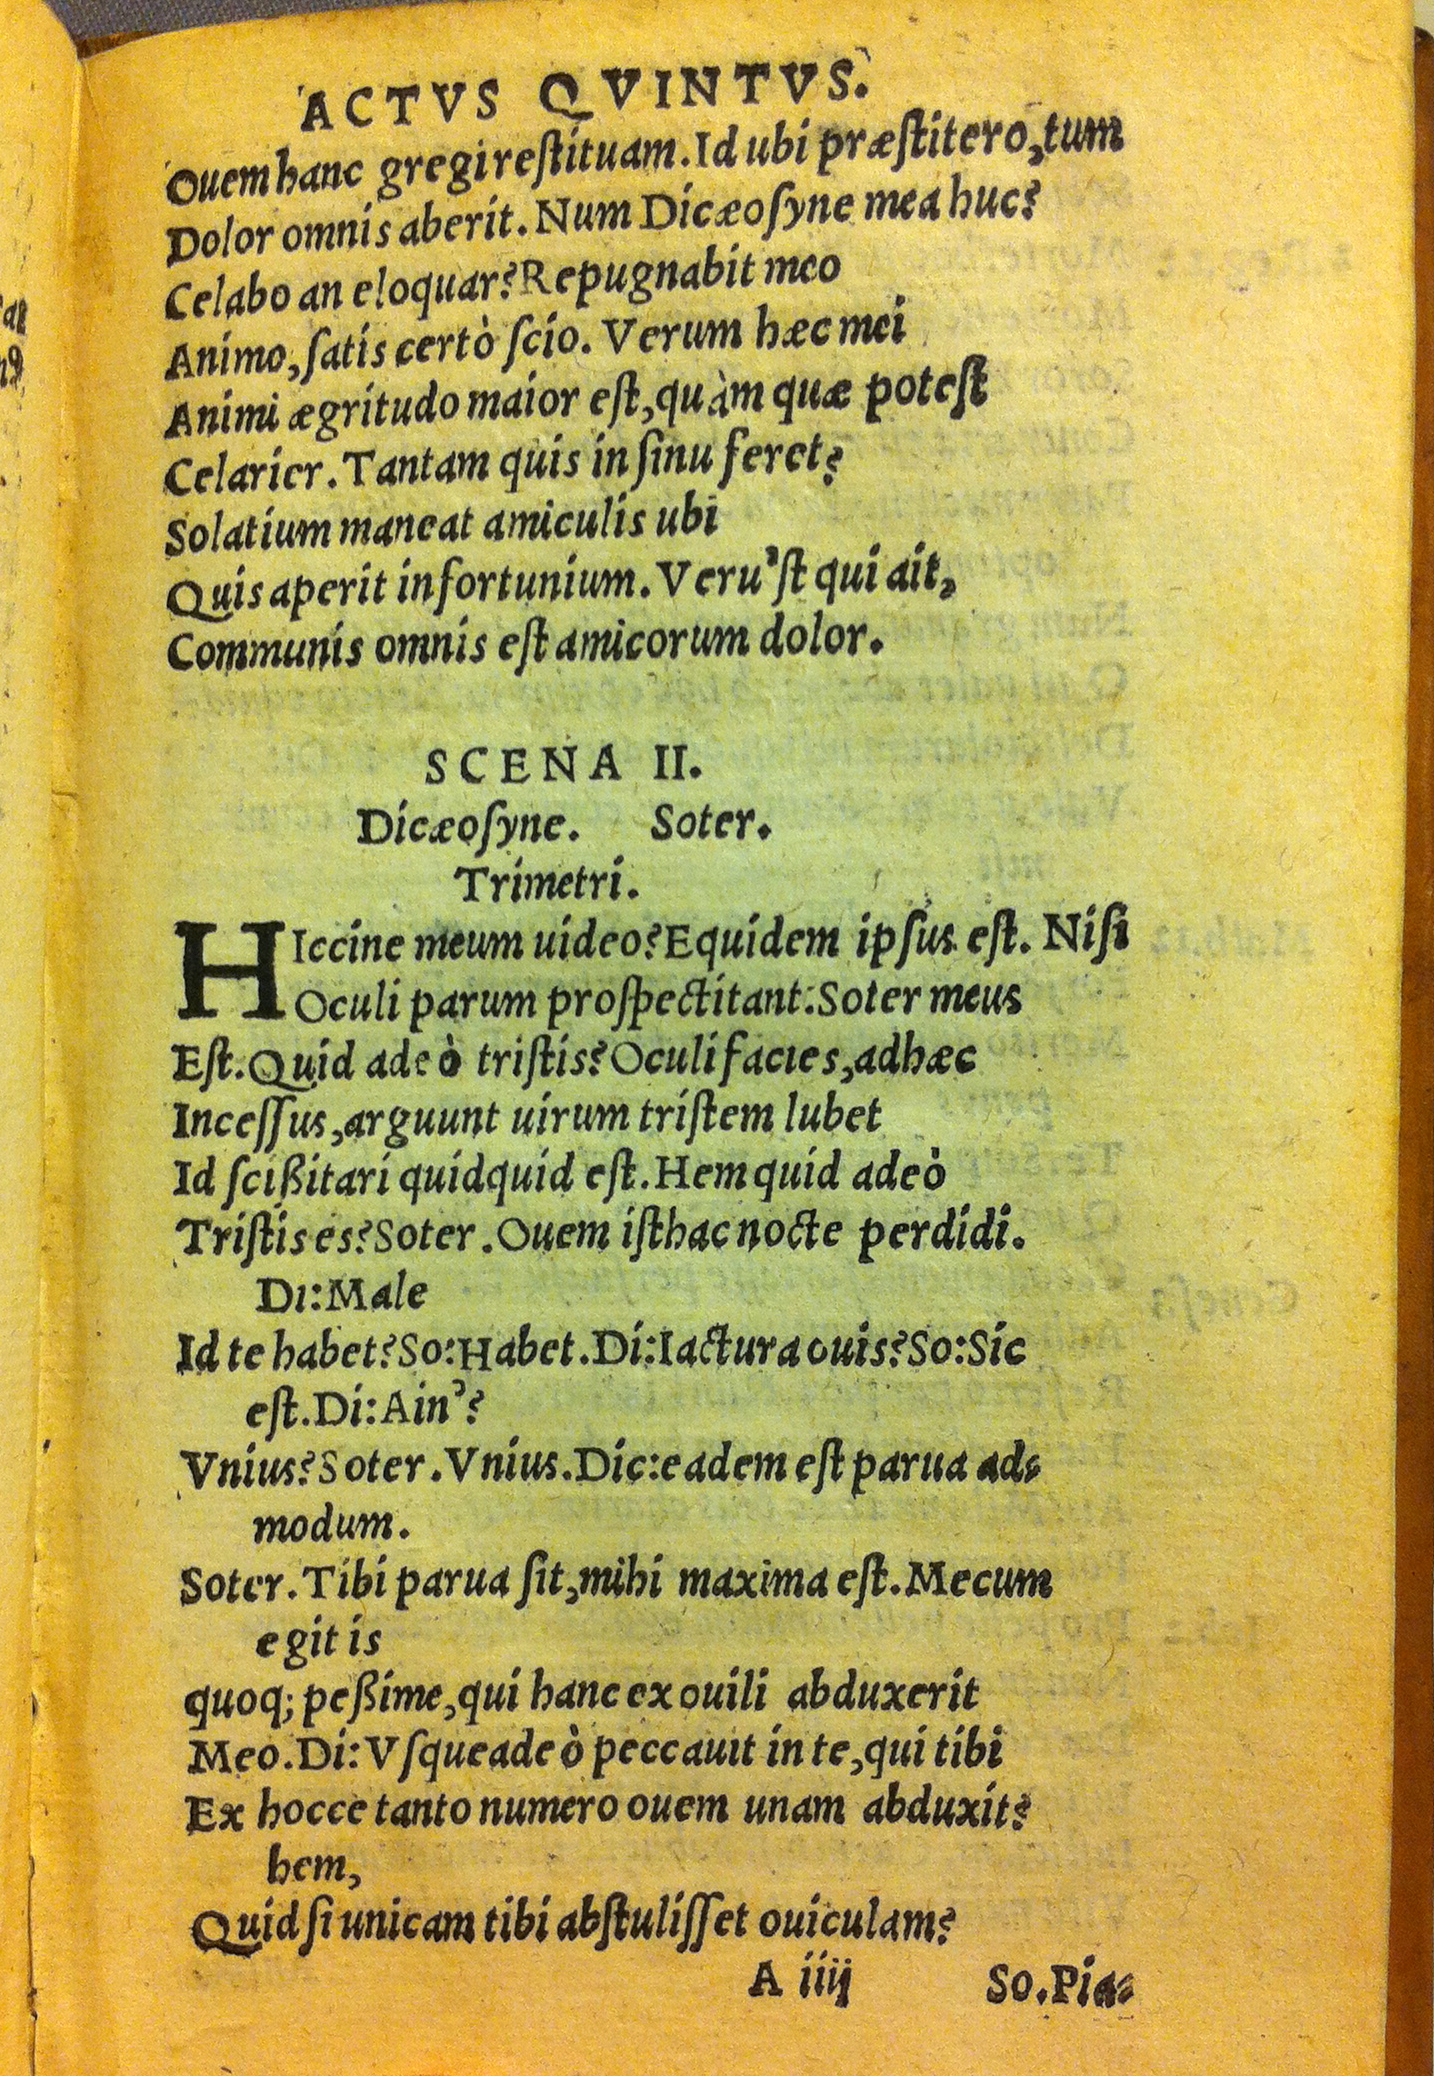 ACTVS QVINTVS.
Ouem hanc gregi reſtituam. Id ubi præſtitero, tum
Dolor omnis aberit. Num Dicæoſyne mea huc?
Celabo an eloquar? Repugnabit meo
Animo, ſatis certò ſcio. Verum hæc mei
Animi ægritudo maior eſt, quàm quæ poteſt
Celarier. Tantam quis in ſinu feret?
Solatium maneat amiculis ubi
Quis aperit infortunium. Veru'ſt qui ait,
Communis omnis eſt amicorum dolor.
SCENA II.
Dicæoſyne. Soter.
Trimetri.
HIccine meum uideo? Equidem ipſus eſt. Niſi
Oculi parum proſpectitant: Soter meus
Eſt. Quid adeò triſtis? Oculi facies, adhæc
Inceſſus, arguunt uirum triſtem lubet
Id ſcißitari quidquid eſt. Hem quid adeò
Triſtis es? Soter. Ouem iſthac nocte perdidi.
Di: Male
Id te habet? So: Habet. Di: Iactura ouis? So: Sic
eſt. Di: Ain'?
Vnius? Soter. Vnius. Dic: eadem eſt parua ad-
modum.
Soter. Tibi parua ſit, mihi maxima eſt. Mecum
egit is
quoq; peßime, qui hanc ex ouili abduxerit
Meo. Di: Vſqueadeò peccauit in te, qui tibi
Ex hocce tanto numero ouem unam abduxit?
hem,
Quid ſi unicam tibi abſtuliſſet ouiculam?
A iiij So. Pia-